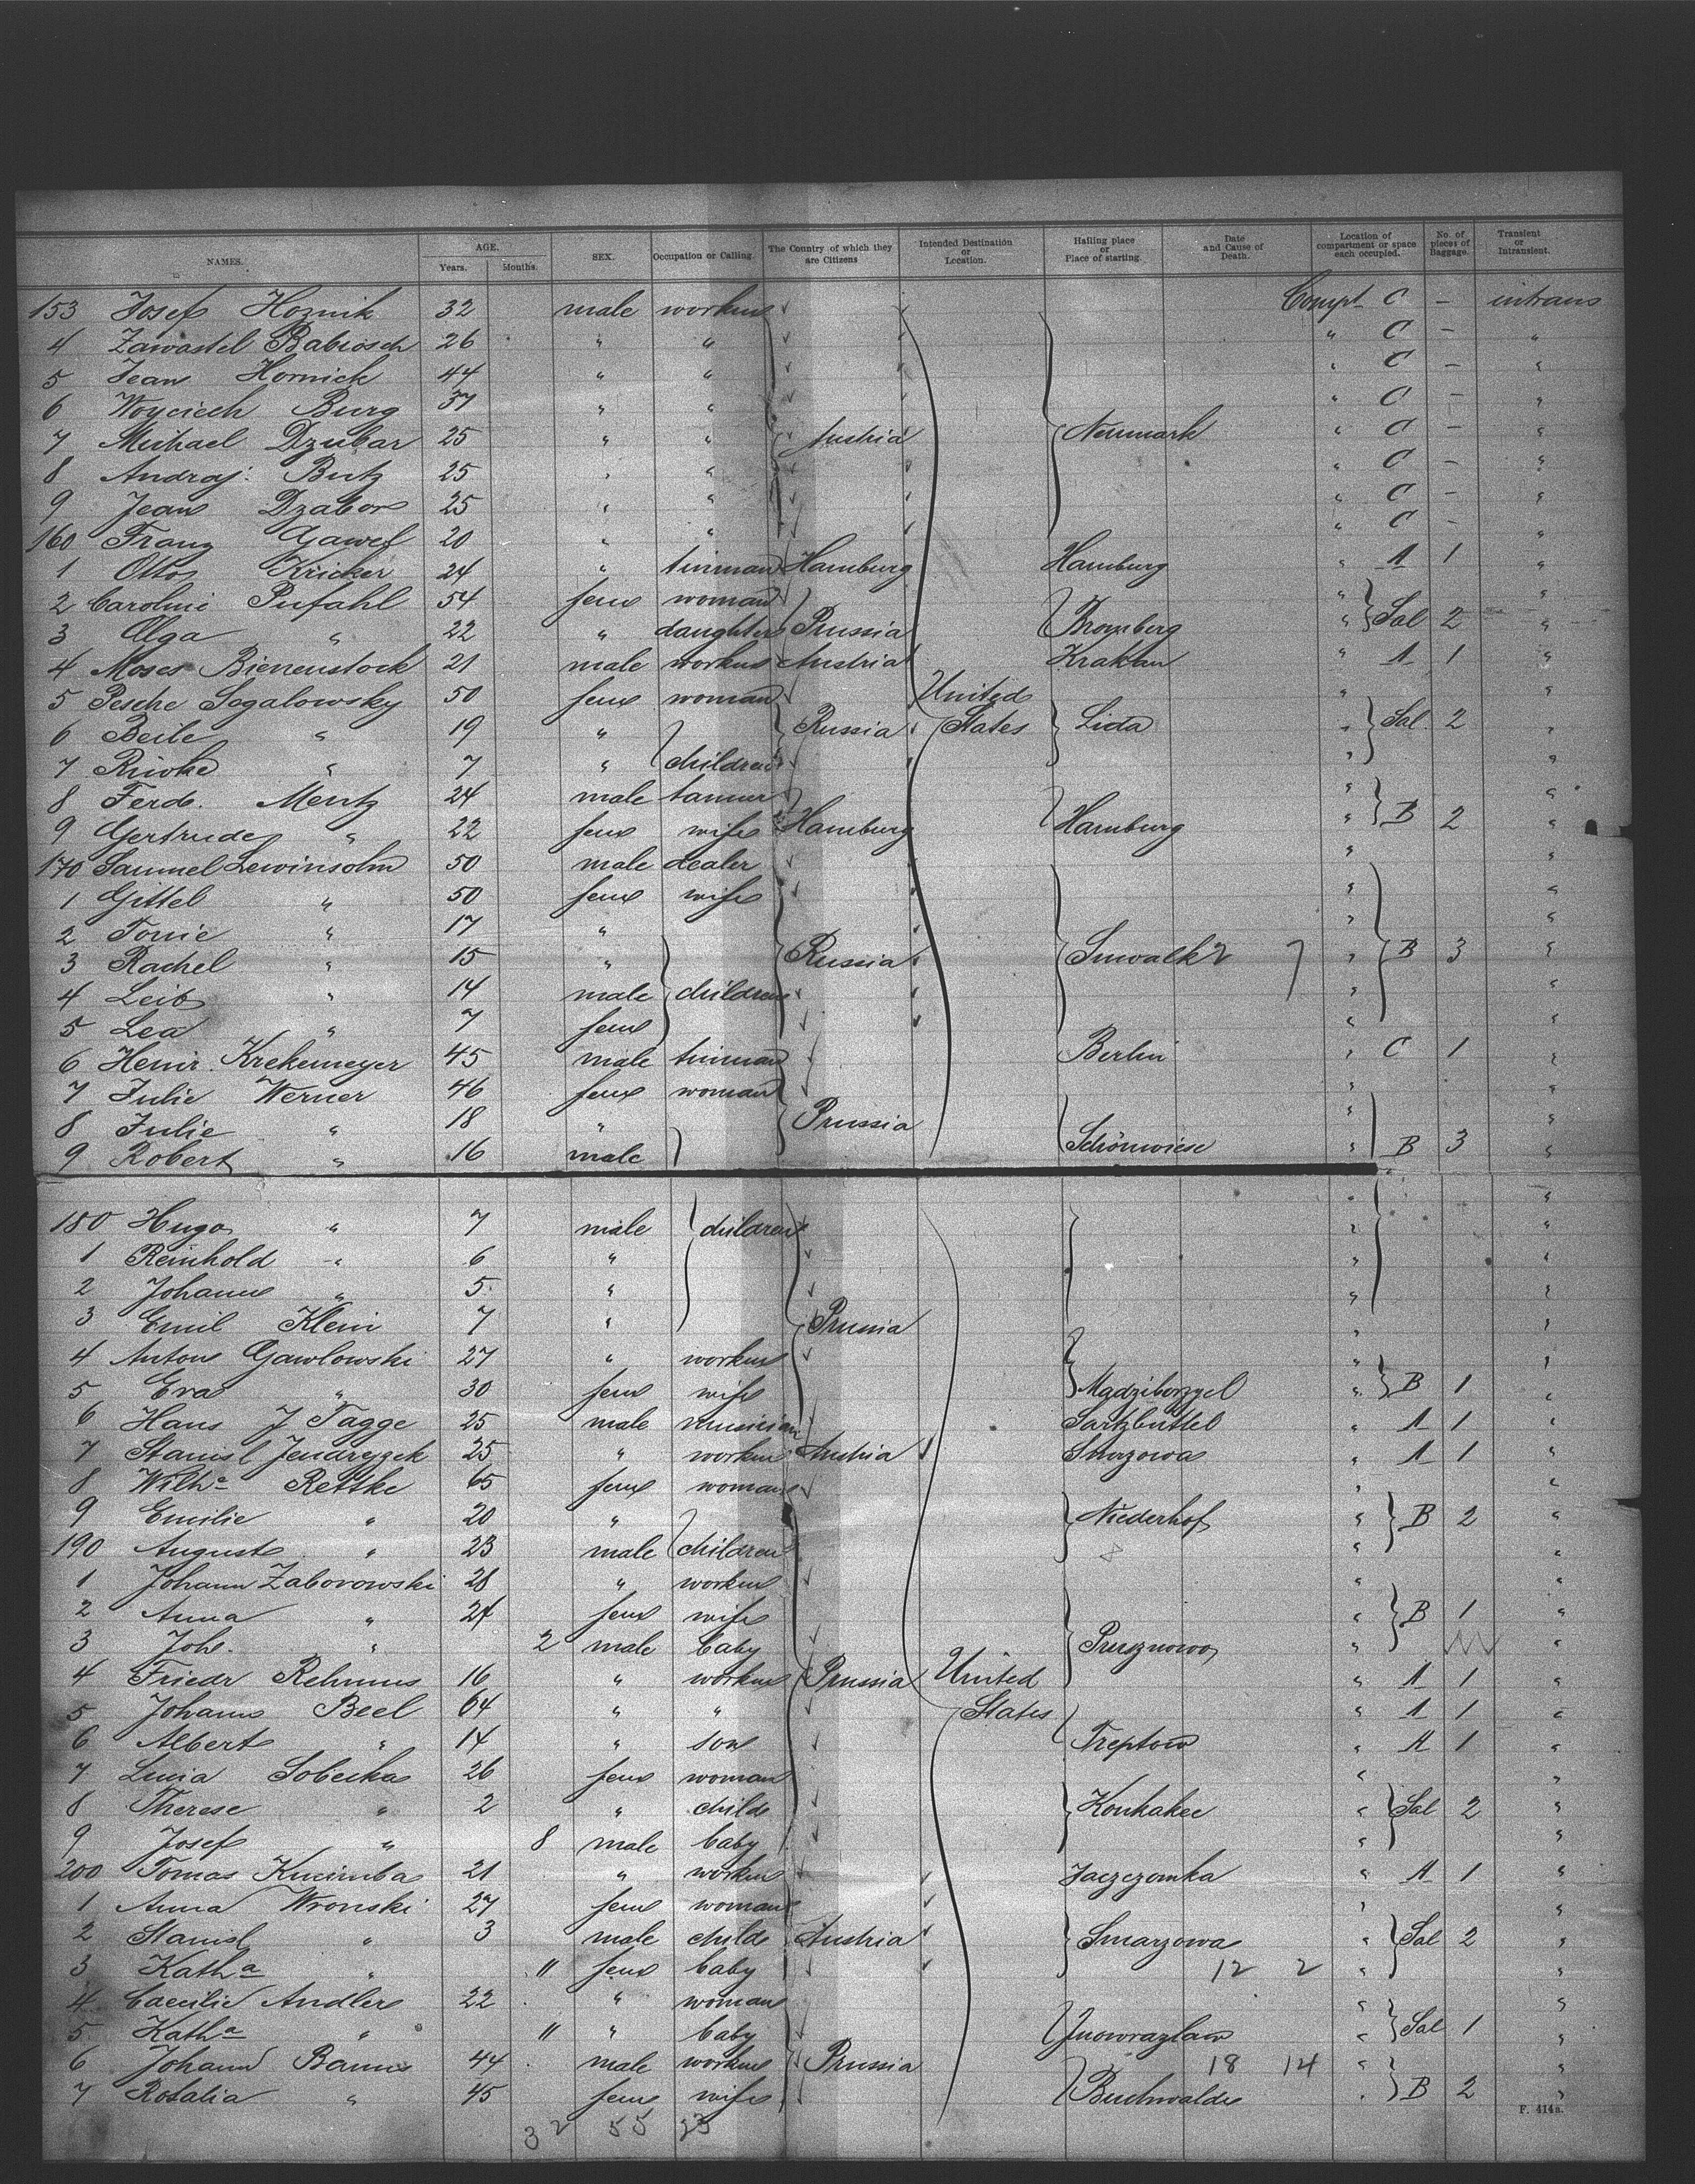 NAMES. AGE. Years. Months. SEX. Occupation or Calling. The Country of which they are Citizens Intended Destination or Location. Hailing place or Place of starting. Date and Cause of Death. Location of compartment or space each occupied. No. of pieces of Baggage. Transient or Intransient.
153 Josef Hoznik 32 male workm Compt C – intrans
4 Babiosch 26 " " " C – "
5 Jean Hornick 44 " " " C – "
6 Woyciech Burg 37 " " " C – "
7 Michael Dzubar 25 " " Austria Neumark " C – "
8 Andraj: Butz 25 " " " C – "
9 Jean Dzabor 25 " " " C – "
160 Franz Gawel 20 " " " C – "
1 Otto Kricker 24 " tinman Hamburg Hamburg " A 1 "
2 Carolini Pufahl 54 fem woman " "
3 Olga " 22 " daughter Prussia Bromberg " Sal 2 "
4 Moses Bienenstock 21 male workm Austria Krakau " A 1 "
5 Pesche Segalowsky 50 fem woman United " "
6 Beile " 19 " Russia States Lida " Sal 2 "
7 Riwke " 7 " children " "
8 Ferd. Mentz 24 male tanner " "
9 Gertrude " 22 fem wife Hamburg Hamburg " B 2 "
170 Samuel Lewinsohn 50 male dealer " "
1 Gittel " 50 fem wife " "
2 Tonie " 17 " " "
3 Rachel " 15 " Russia Suwalki " B 3 "
4 Leib " 14 male children " "
5 Lea " 7 fem " "
6 Heinr. Krekemeyer 45 male tinman Berlin " C 1 "
7 Julie Werner 46 fem woman " "
8 Julie " 18 " Prussia " "
9 Robert " 16 male Schönwiese " B 3 "
180 Hugo " 7 male children " "
1 Reinhold " 6 " " "
2 Johann " 5 " " "
3 Emil Klein 7 " Prussia " "
4 Anton Gawlowski 27 " workm " "
5 Eva " 30 fem wife " B 1 "
6 Hans J Tagge 25 male musician Sarlzbuttel " A 1 "
7 Stanisl 25 " workm Austria Smarzowa " A 1 "
8 Wilh~~a~~ Rettke 65 fem woman " "
9 Emilie " 20 " Niederhof " B 2 "
190 August " 23 male children " "
1 Johann Zaborowski 28 " workm " "
2 Anna " 24 fem wife " B 1 "
3 Joh. " 2 male baby " "
4 Friedr Rehmus 16 " workm Prussia United " A 1 "
5 Johann Beel 64 " " States " A 1 "
6 Albert " 14 " son Treptow " A 1 "
7 Lucia Sobecka 26 fem woman " "
8 Therese " 2 " child Konkakee " Sal 2 "
9 Josef " 8 male baby " "
200 Tomas Kucimba 21 " workm " A 1 "
1 Anna Wronski 27 fem woman " "
2 Stanisl " 3 male child Austria Smarzowa " Sal 2 "
3 Katha " 11 fem baby 12 2 " "
4 Caecilie Andler 22 " woman " "
5 Katha " 11 " baby Inowrazlaw " Sal 1 "
6 Johann Bannis 44 male workm Prussia 18 14 " "
7 Rosalia " 45 fem wife Buchwalde " B 2 "
F. 414a.
32 55 23